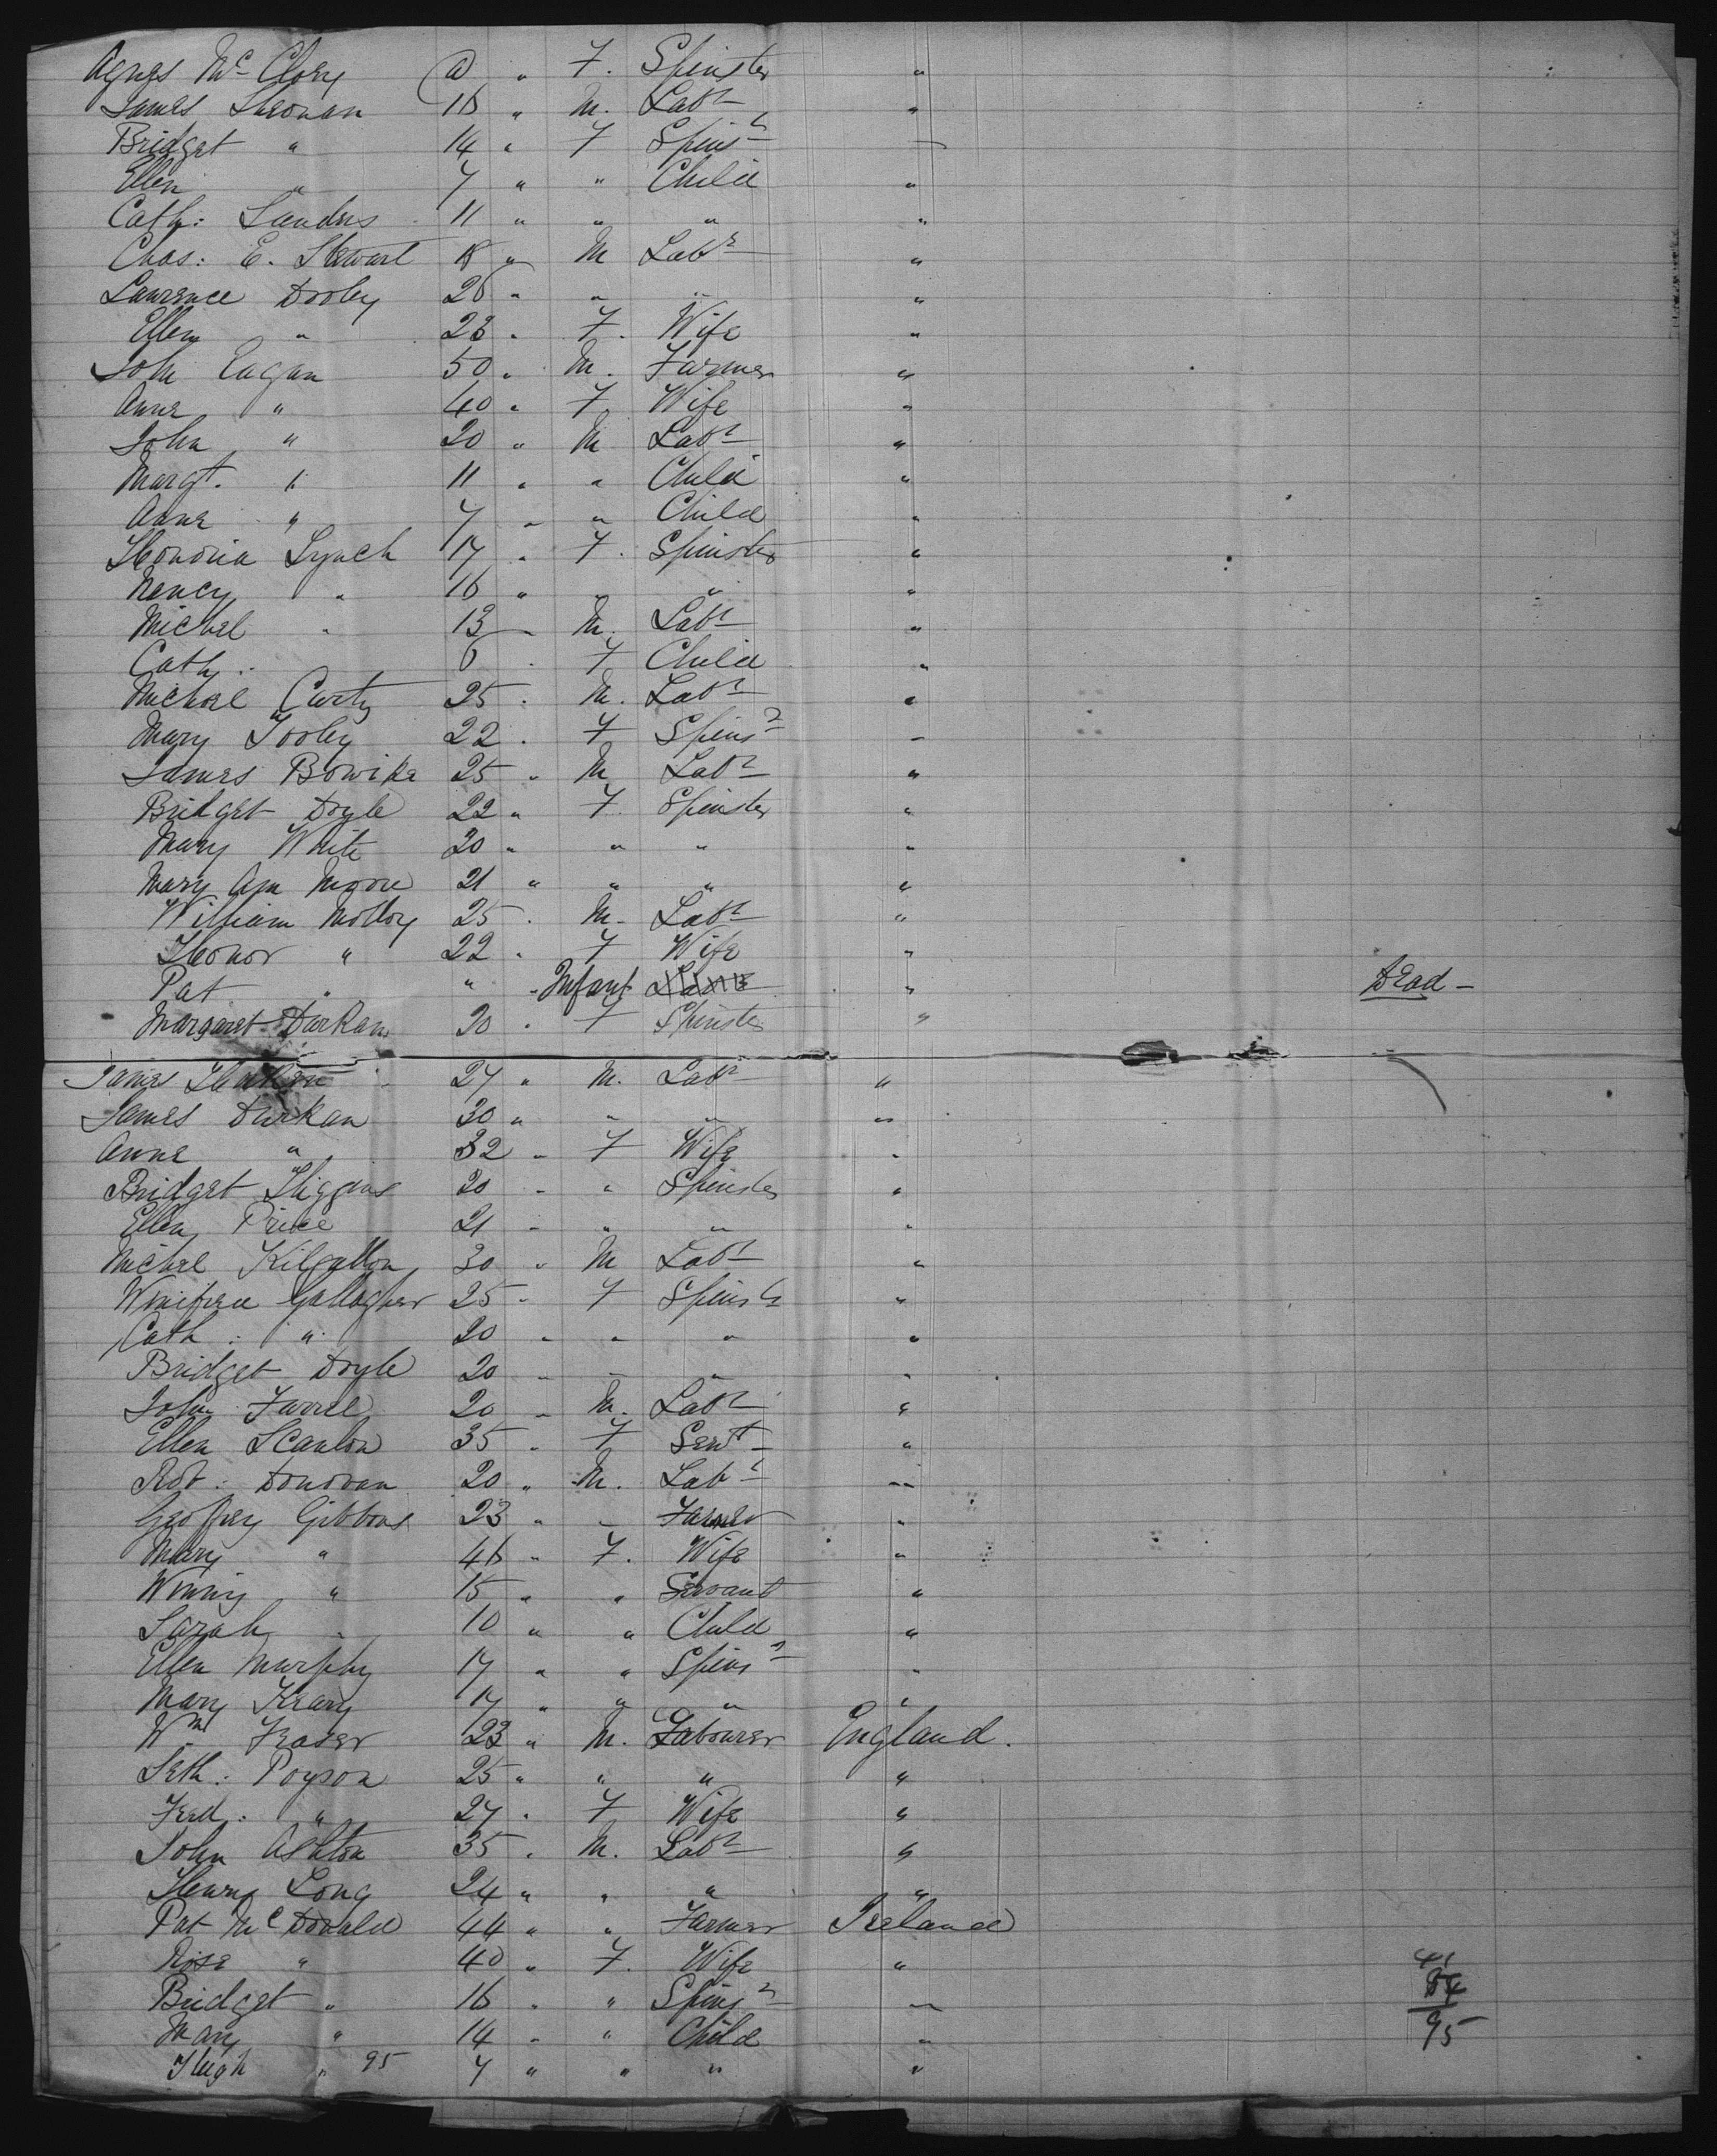 Agnes Mc Clory @ " F. Spinster "
James Sheonan 16 " M. Labr "
Bridget " 14 " F Spinsr "
Ellen " 7 " " Child "
Cath: Sanders 11 " " " "
Chas: E. Stewart 18 " M Labr "
Lawrence Dooley 26 " " " "
Ellen " 23 " F. Wife "
John Eagan 50 " M. Farmer "
Anne " 40 " F. Wife "
John " 20 " M Labr "
Margt. " 11 " " Child "
Anne " 7 " " Child "
Honoria Lynch 17 " F. Spinster "
Nancy " 16 " " " "
Michal " 13 " M. Labr "
Cath. " 6 " F Child "
Michael Carty 25 " M. Labr "
Mary Tooley 22 " F Spinsr "
James Bowike 25 " M Labr "
Bridget Doyle 22 " F Spinster "
Mary White 20 " " " "
Mary Ann Moore 21 " " " "
William Molloy 25 " M. Labr "
Honor " 22 " F Wife "
Pat " " " Infant " Dead -
Margaret Durkan 20 " F Spinster "
James 27 " M. Labr "
James Durkan 30 " " " "
Anne " 32 " F Wife "
Bridget Higgins 20 " " Spinster "
Ellen Price 21 " " " "
Michal Kilgallon 30 " M Labr "
Winifred Gallagher 25 " F Spinstr "
Cath: " 20 " " " "
Bridget Doyle 20 " " " "
John Farrel 20 " M. Labr "
Ellen Scanlon 35 " F Servt "
Robt: Donovan 20 " M. Labr "
Geoffrey Gibbons 23 " " Farmer "
Mary " 46 " F. Wife "
Winny " 15 " " Servant "
Sarah " 10 " " Child "
Ellen Murphy 17 " " Spinsr "
Mary Keary 17 " " " "
Wm Frazer 23 " M. Labourer England.
Seth: Poyson 25 " " " "
Fred: " 27 " F Wife "
John Ashton 35 " M. Labr "
Henry Long 24 " " " "
Pat McDonald 44 " " Farmer Ireland
Rose " 40 " F. Wife "
Bridget " 16 " " Spinsr "
Mary " 14 " " Child "
Hugh " 95 7 " " " "
41
54
95